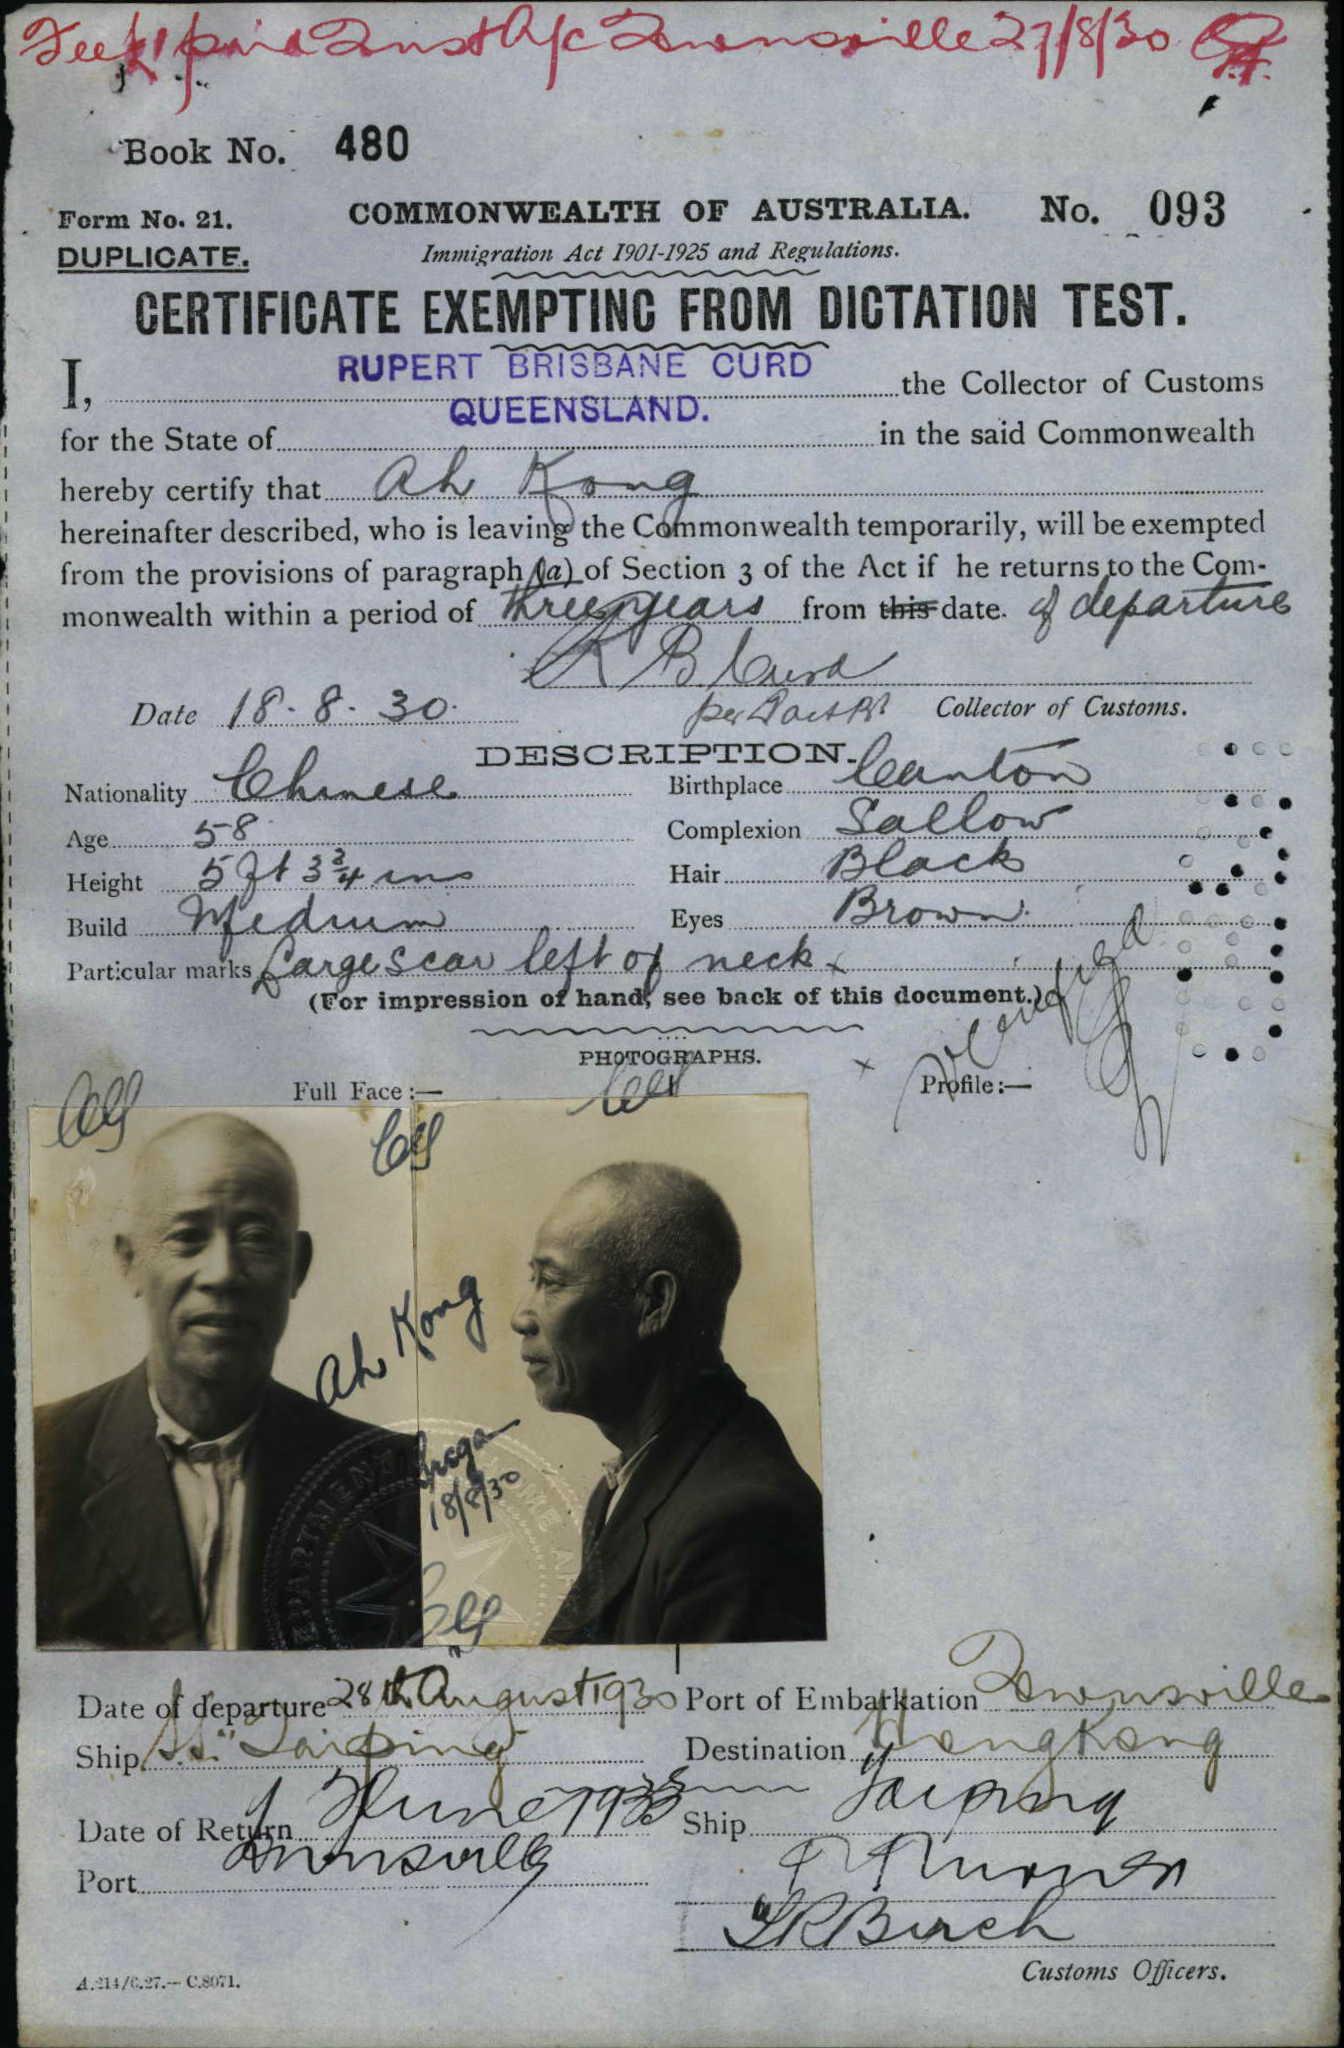 Fee £1 paid Trust A/c Townsville 27/8/30
Book No. 480
Form No. 21. COMMONWEALTH OF AUSTRALIA. No. 093
DUPLICATE. Immigration Act 1901-1925 and Regulations.
CERTIFICATE EXEMPTING FROM DICTATION TEST.
I, RUPERT BRISBANE CURD the Collector of Customs
for the State of QUEENSLAND. in the said Commonwealth
hereby certify that Ah Kong
hereinafter described, who is leaving the Commonwealth temporarily, will be exempted
from the provisions of paragraph (a) of Section 3 of the Act if he returns to the Com-
monwealth within a period of three years from this date. of departure
R B Curd
Date 18.8.30. per Collector of Customs.
DESCRIPTION.
Nationality Chinese Birthplace Canton
Age 58 Complexion Sallow
Height 5 ft 3 3/4 ins Hair Black
Build Medium Eyes Brown.
Particular marks Large scar left of neck x
(For impression of hand, see back of this document.)
PHOTOGRAPHS.
Full Face :— x Profile :—
Ah Kong
18/8/30
DEPARTMENT HOME AF
Date of departure 28th August 1930 Port of Embarkation Townsville
Ship S.S. "Taiping" Destination Hong Kong
Date of Return June 1933 Ship Taiping
Port Townsville
LR Birch
Customs Officers.
A.214/6.27.— C.8071.